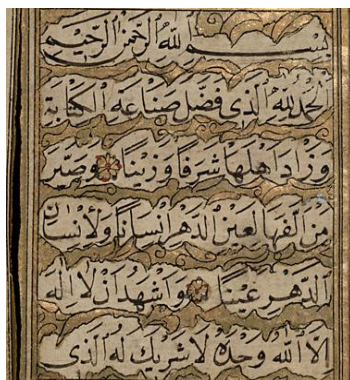 بسم الله الرحمن الرحيم
الحمد لله الذي فضل صناعة الكتابة
وزاد اهلها شرفا وزينا وصير
من الفها لعين الدهر انسانا ولأنسان
الدهر عينا واشهد ان لا اله
الا الله وحده لا شريك له الذي